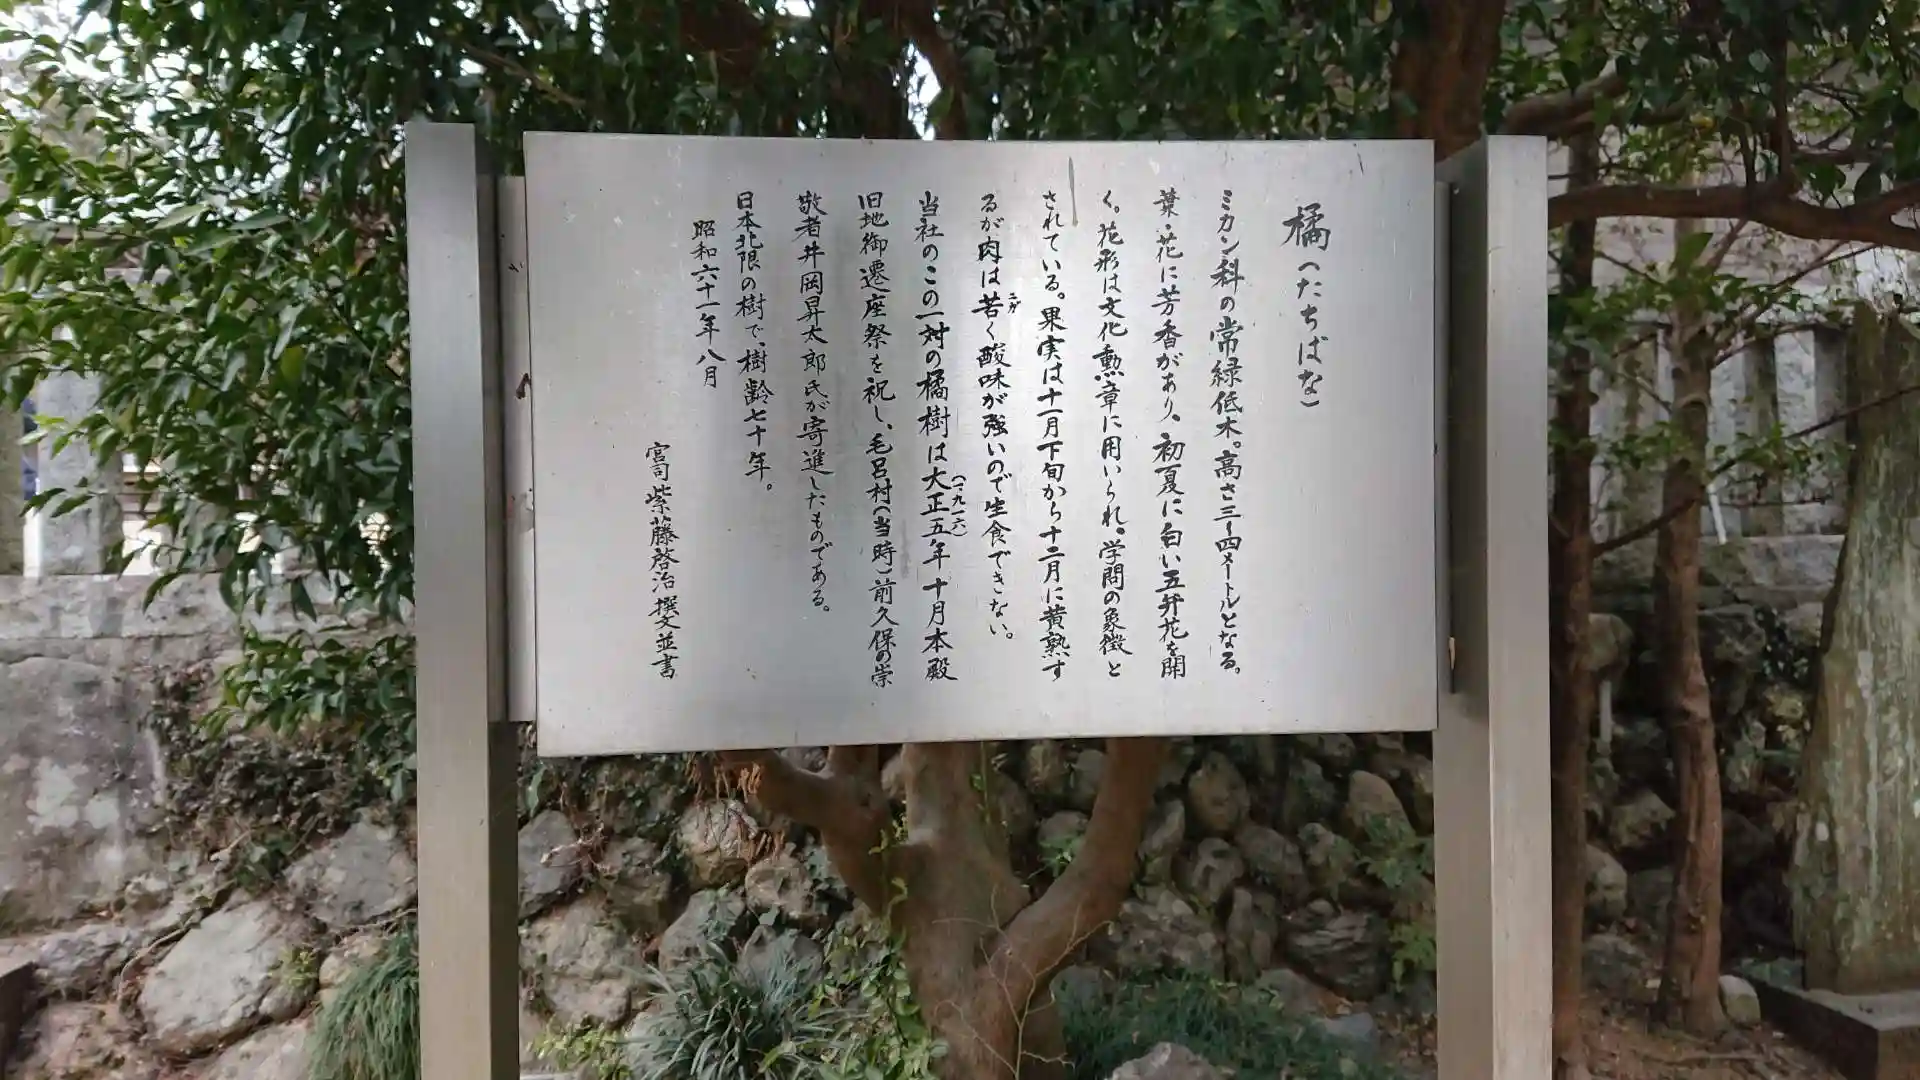 橘（たちばな）
ミカン科の常緑低木。高さ三ー四メートルとなる。
葉・花に芳香があり、初夏に白い五弁花を開
く。花形は文化勲章に用いられ。学問の象徴と
されている。果実は十一月下旬から十二月に黄熟す
るが肉は苦く酸味が強いので生食できない。
ニガ
当社のこの一対の橘樹は大正五年十月本殿
（一九一六）
旧地御遷座祭を祝し、毛呂村（当時）前久保の崇
敬者井岡昇太郎氏が寄進したものである。
日本北限の樹で、樹齢七十年。
昭和六十一年八月
宮司紫藤啓治撰文並書